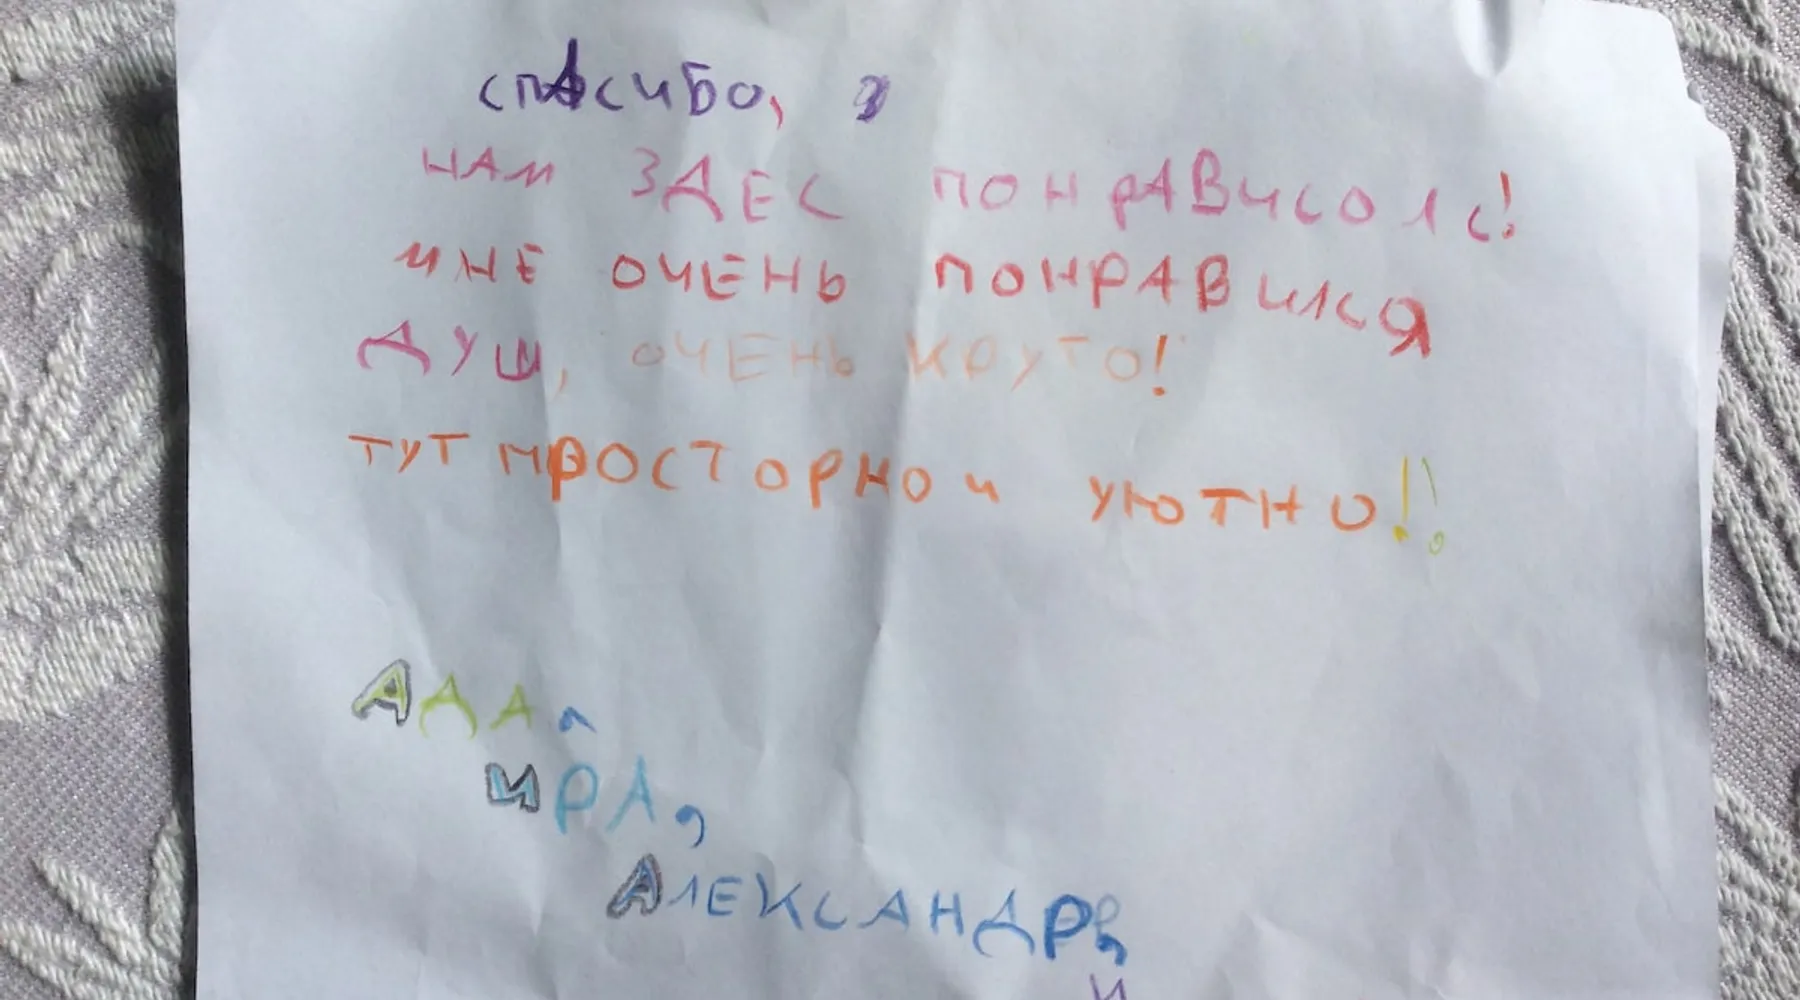 спАсиБо,
нАм ЗДЕС понрАВисолс!
мнЕ оЧЕНЬ понРАВился
Душ, оЧЕНЬ круто!
тут просторно и уютно!!
АДА,
ИРА,
АлЕксАнДР,
и